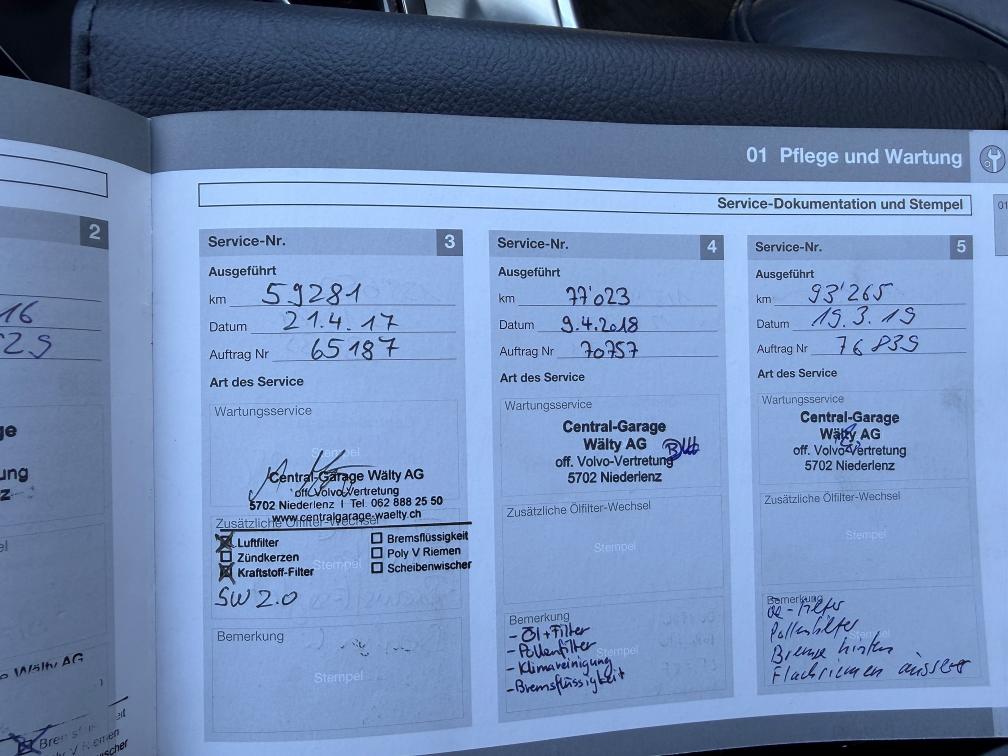 01 Pflege und Wartung
01
Service-Dokumentation und Stempel
2
16
29
ge
ung
z
Wälty AG
Service-Nr. 3
Ausgeführt
km 59281
Datum 21.4.17
Auftrag Nr 65187
Art des Service
Wartungsservice
Stempel
Central-Garage Wälty AG
off. Volvo-Vertretung
5702 Niederlenz I Tel. 062 888 25 50
www.centralgarage-waelty.ch
Zusätzliche Ölfilter-Wechsel
Luftfilter
Zündkerzen
Kraftstoff-Filter
Bremsflüssigkeit
Poly V Riemen
Scheibenwischer
Stempel
SW 2.0
Bemerkung
Stempel
Service-Nr. 4
Ausgeführt
km 77'023
Datum 9.4.2018
Auftrag Nr 70757
Art des Service
Wartungsservice
Central-Garage
Wälty AG
off. Volvo-Vertretung
5702 Niederlenz
Zusätzliche Ölfilter-Wechsel
Stempel
Bemerkung
- Öl + Filter
- Pollenfilter
- Klimareinigung
- Bremsflüssigkeit
Stempel
Service-Nr. 5
Ausgeführt
km 93'265
Datum 19.3.19
Auftrag Nr 76839
Art des Service
Wartungsservice
Central-Garage
Wälty AG
off. Volvo-Vertretung
5702 Niederlenz
Zusätzliche Ölfilter-Wechsel
Stempel
Bemerkung
Pollenfilter
Bremse hinten
Flachriemen